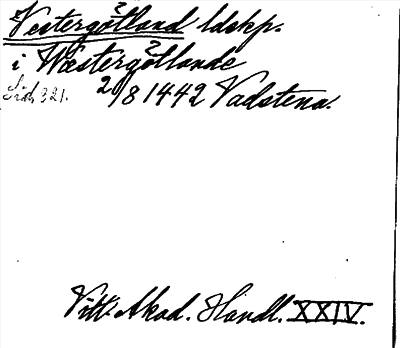 Vestergötland ldskp.
i Wæstergøtlande
Sid. 321. 2/8 1442 Vadstena.
Vitt. Akad. Handl. XXIV.